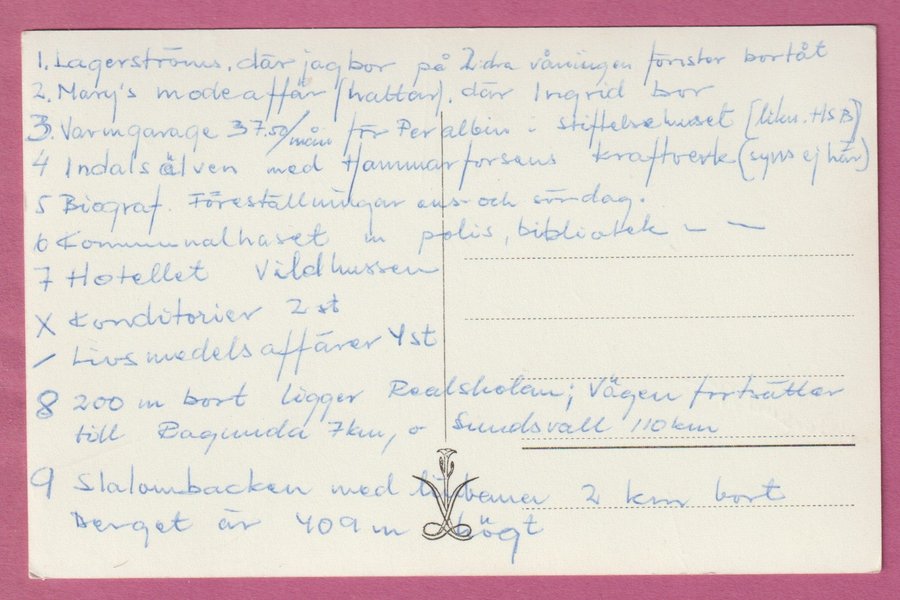 1. Lagerströms, där jag bor på 2:dra våningen fönster bortåt
2. Mary's modeaffär (hattar), där Ingrid bor
3. Varmgarage 37.50/mån för Per Albin - Stiftelsehuset [likn. HSB]
4 Indalsälven med Hammarforsens kraftverk (syns ej här)
5 Biograf. Föreställningar ons- och söndag.
6 Kommunalhuset m polis, bibliotek - -
7 Hotellet Vildhussen
X Konditorier 2 st
/ Livsmedelsaffärer 4 st
8 200 m bort ligger Realskolan; Vägen fortsätter
till Ragunda 7km, o Sundsvall 110km
9 Slalombacken med 2 km bort
Berget är 409 m högt